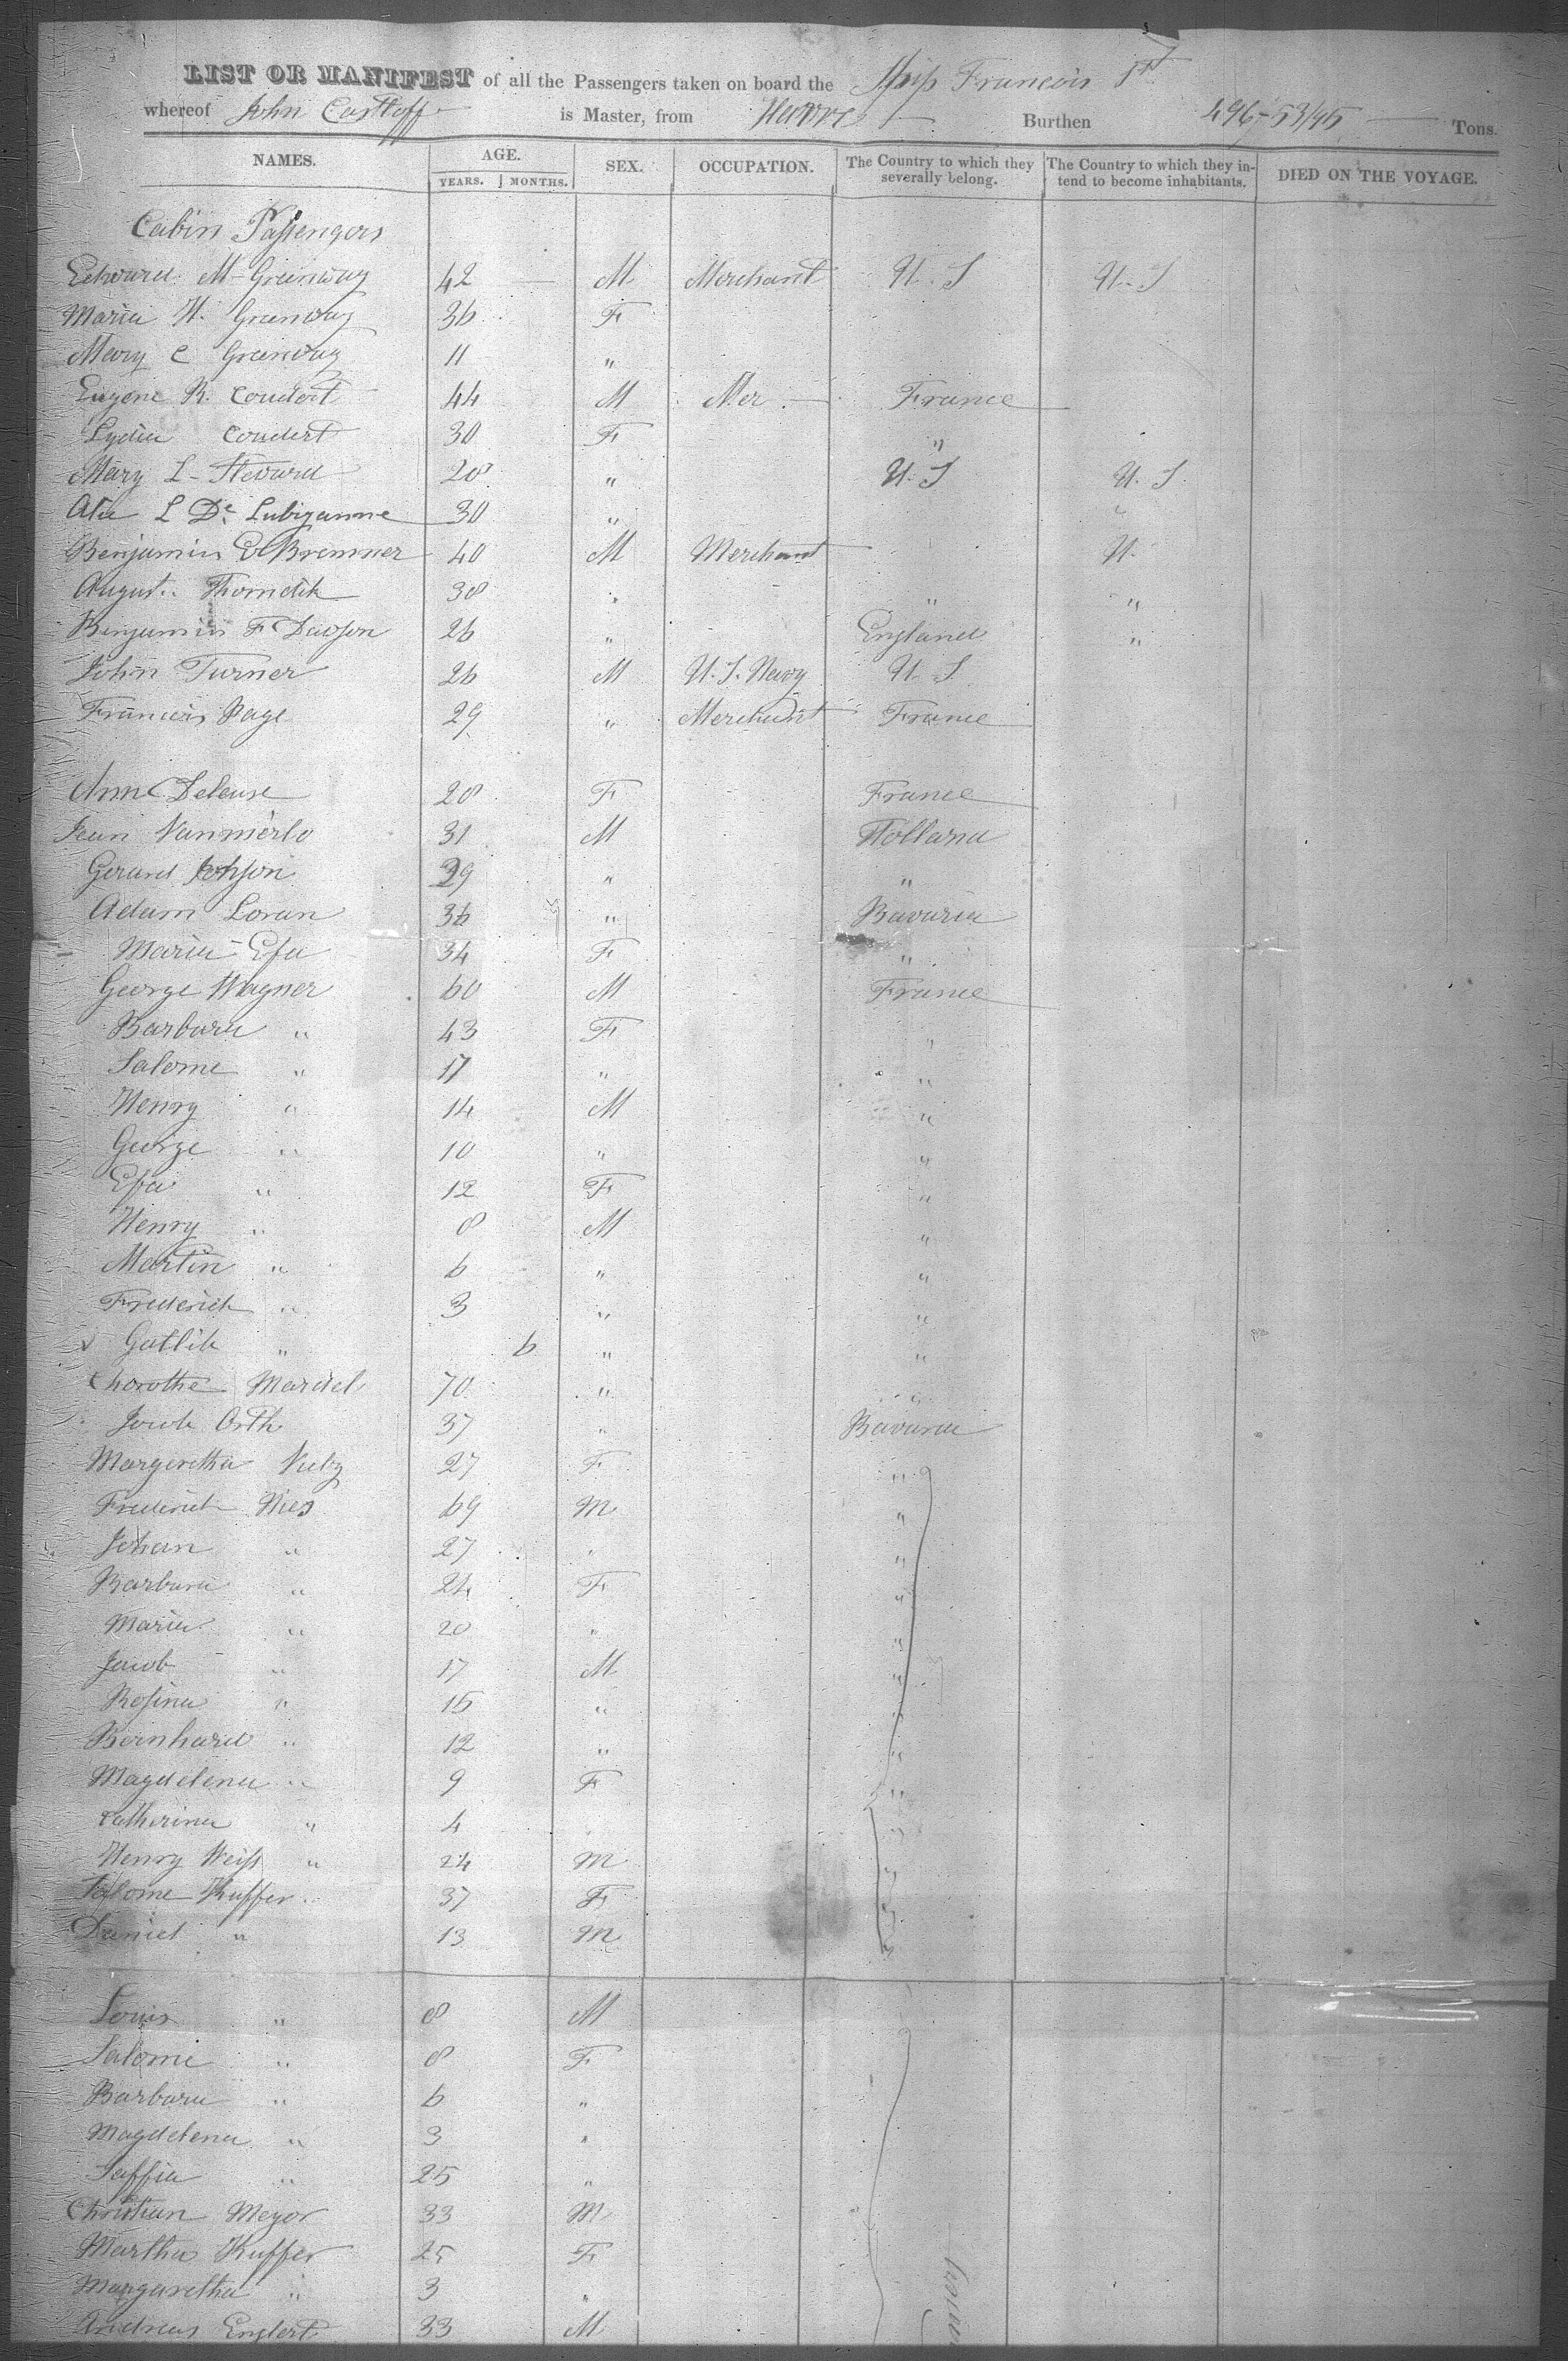 LIST OR MANIFEST of all the Passengers taken on board the Ship Francois 1st
whereof John Castoff is Master, from Havre Burthen 496-53/95 Tons.
NAMES. AGE. YEARS. MONTHS. SEX. OCCUPATION. The Country to which they severally belong. The Country to which they intend to become inhabitants. DIED ON THE VOYAGE.
Cabin Passengers
Edward M Greenway 42 M Merchant U.S U.S
Maria H. Greenway 36 F
Mary C Greenway 11 "
Eugene R. Coudert 44 M Mer France
Lydia Coudert 30 F "
Mary L Steward 28 " U.S U.S
L De 30 "
Benjamin Bremner 40 M Merchant U.
August. Thorndik 38 " " "
Benjamin F Dawson 26 " England "
John Turner 26 M U.S. Navy U.S
Francois Page 29 " Merchant France
Ann Deleuse 28 F France
Jean Vanmierlo 31 M Holland
Gerard 29 " "
Adam Loran 36 " Bavaria
Maria Efa 34 F "
George Wagner 60 M France
Barbara " 43 F "
Salome " 17 " "
Henry " 14 M "
George " 10 " "
Efa " 12 F "
Henry " 8 M "
Martin " 6 " "
Frederick " 3 " "
Gotlib " 6 " "
Mardel 70 " "
Jacob Orth 37 " Bavaria
Margeretha 27 F "
Frederick Nies 69 M "
Johan " 27 " "
Barbara " 24 F "
Maria " 20 " "
Jacob " 17 M "
Rosina " 15 " "
Bernhard " 12 " "
Magdelena " 9 F "
Catherina " 4
Henry Weiss " 24 M
Salome Kuffer 37 F
Daniel " 13 M
Louis " 8 M
Salomi " 8 F
Barbara " 6 "
Magdelena " 3 "
Saffia " 25 "
Christian Meyer 33 M
Martha Kuffer 25 F
Margaretha " 3 "
Andreas Englert 33 M